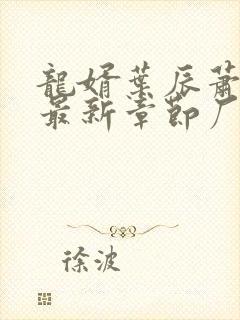 龍婿葉辰蕭
最新章節厂
徐波